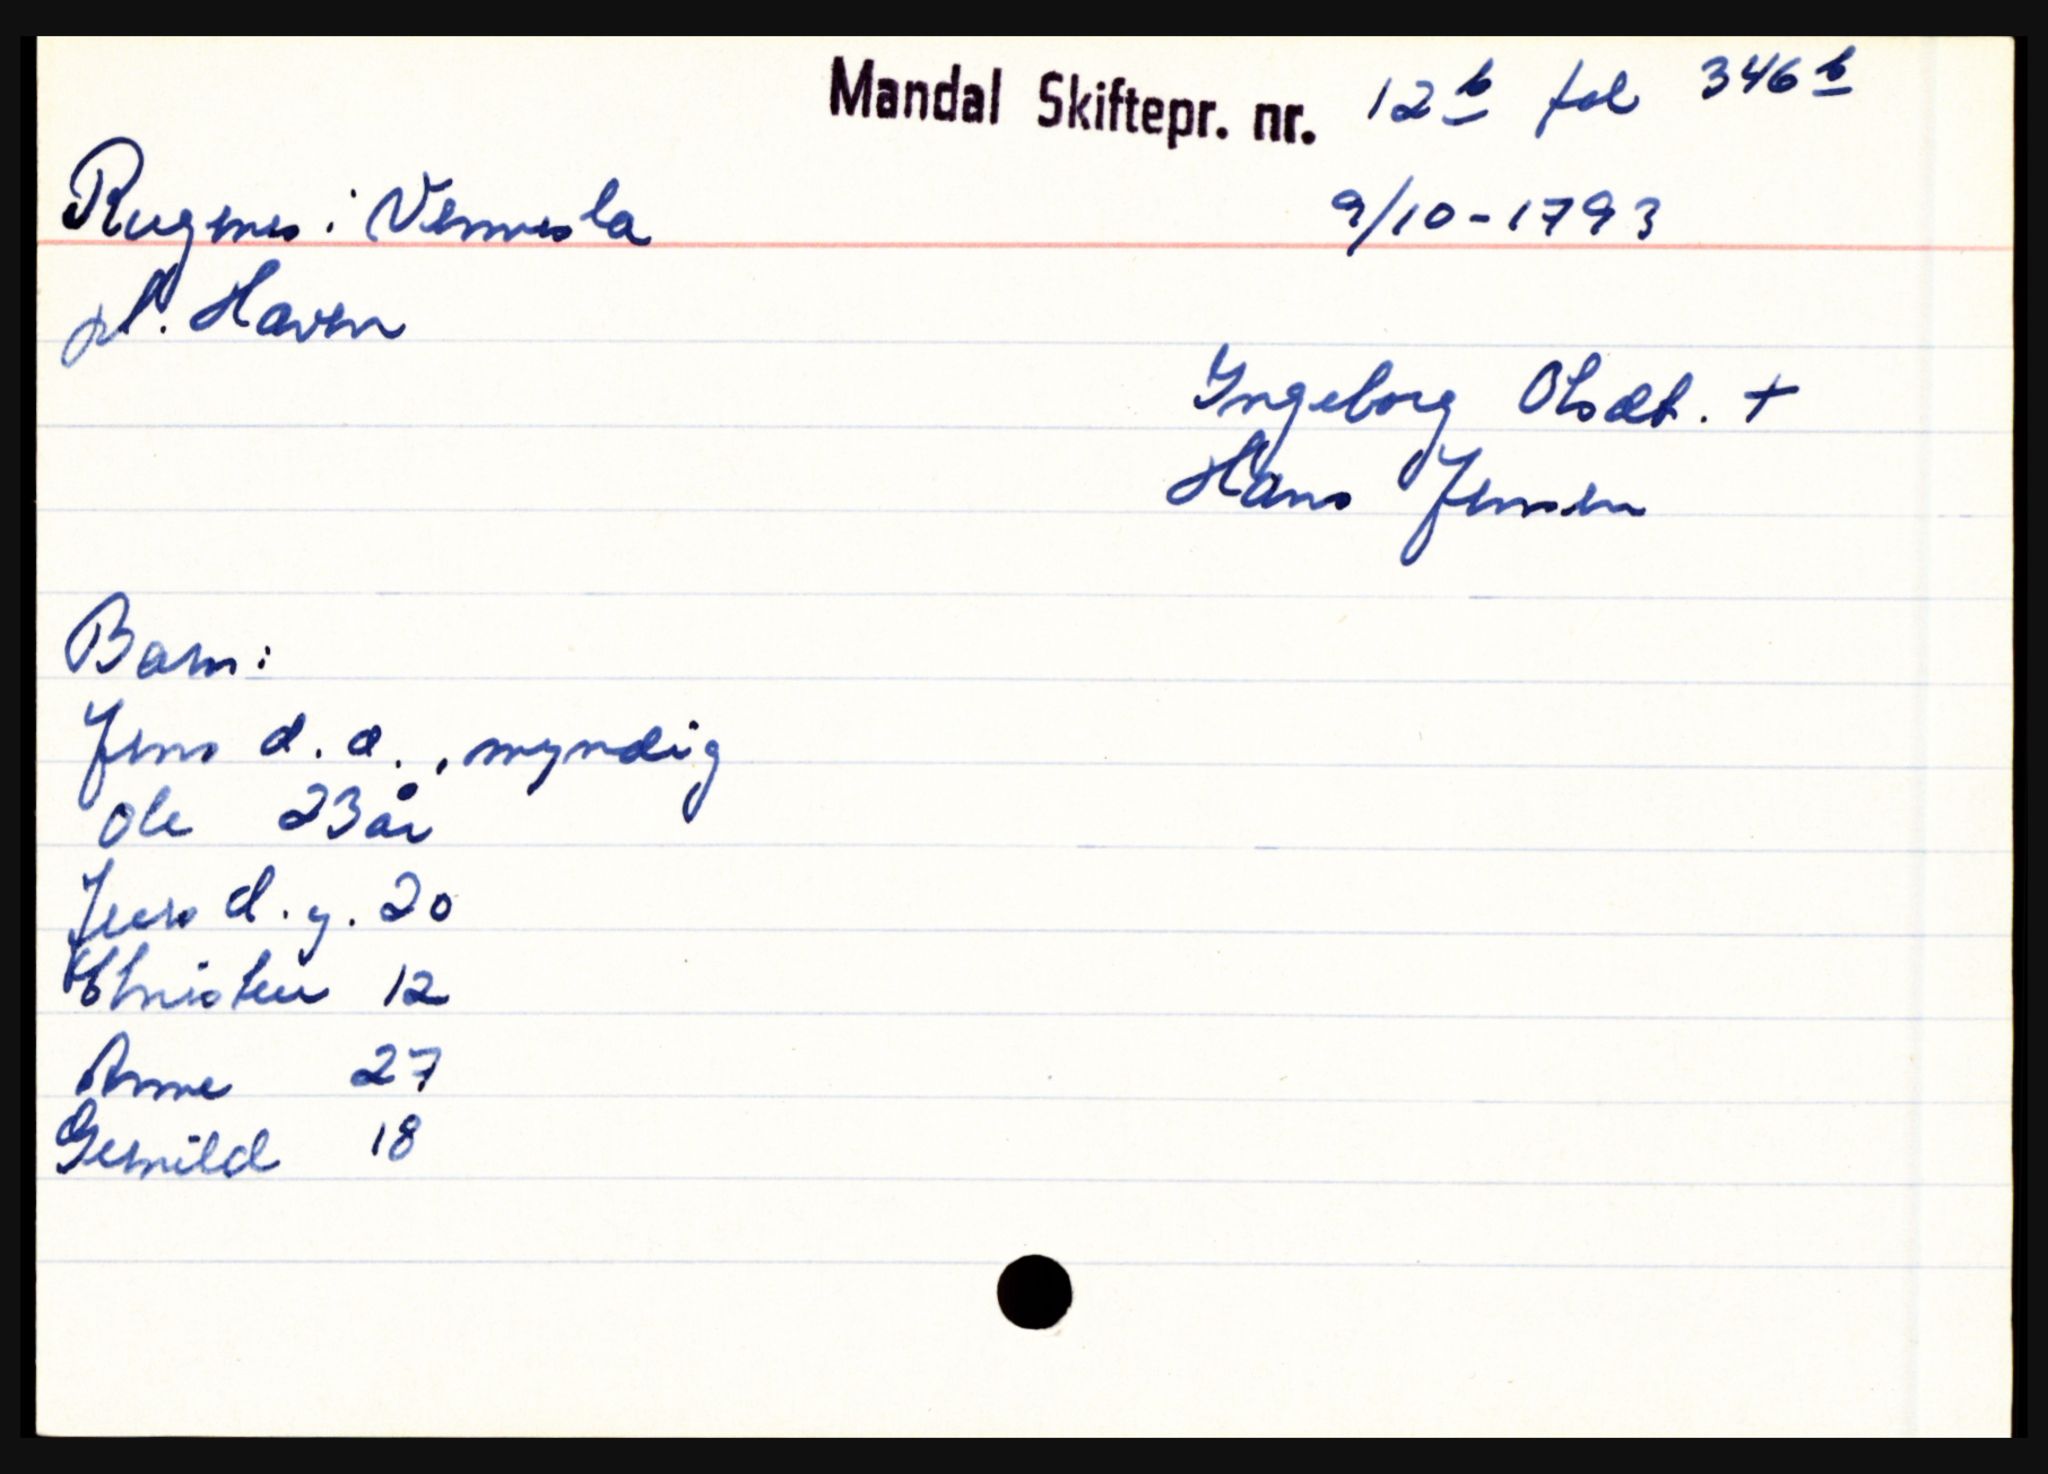 Mandal Skiftepr. nr. 12b fol 346b
Rugenes i Vennesla 9/10-1793
pl. Haven
Ingeborg Olsdt. +
Hans Jensen
Barn:
Jens d.a., myndig
Ole 23 år
Jens d.y. 20
Christen 12
Anne 27
Germild 18